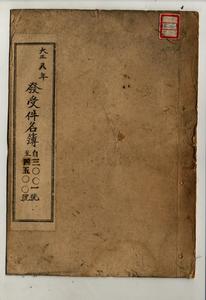 大正五年
發受件名簿
自三〇〇一號
至四五〇〇號